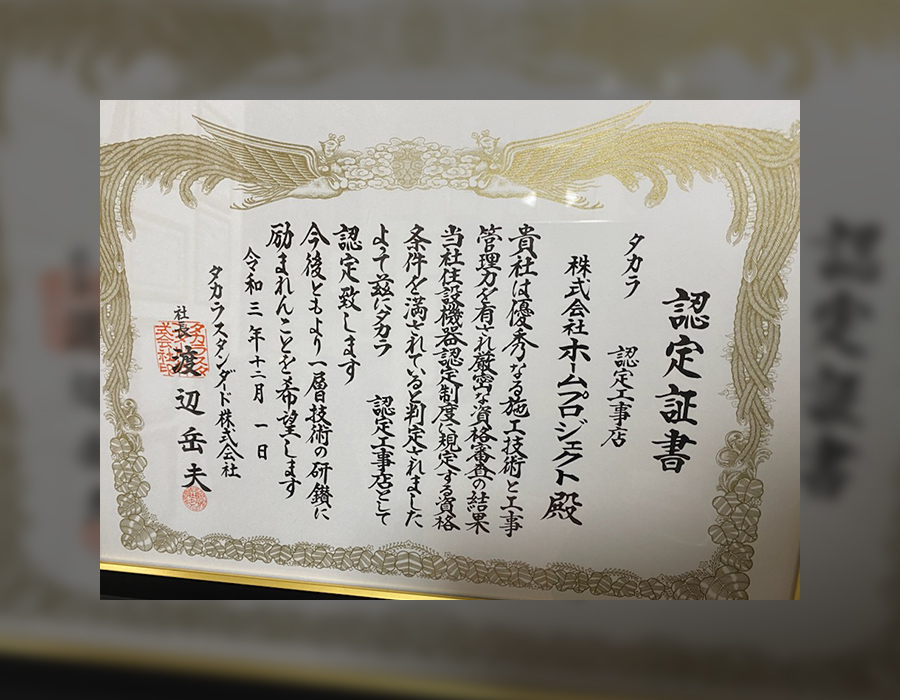 認定証書
タカラ 認定工事店
株式会社ホームプロジェクト殿
貴社は優秀なる施工技術と工事
管理力を有され厳密な資格審査の結果
当社住設機器認定制度に規定する資格
条件を満されていると判定されました
よって茲にタカラ 認定工事店として
認定致します
今後ともより一層技術の研鑚に
励まれんことを希望します
令和三年十二月一日
タカラスタンダード株式会社
社長 渡辺岳夫